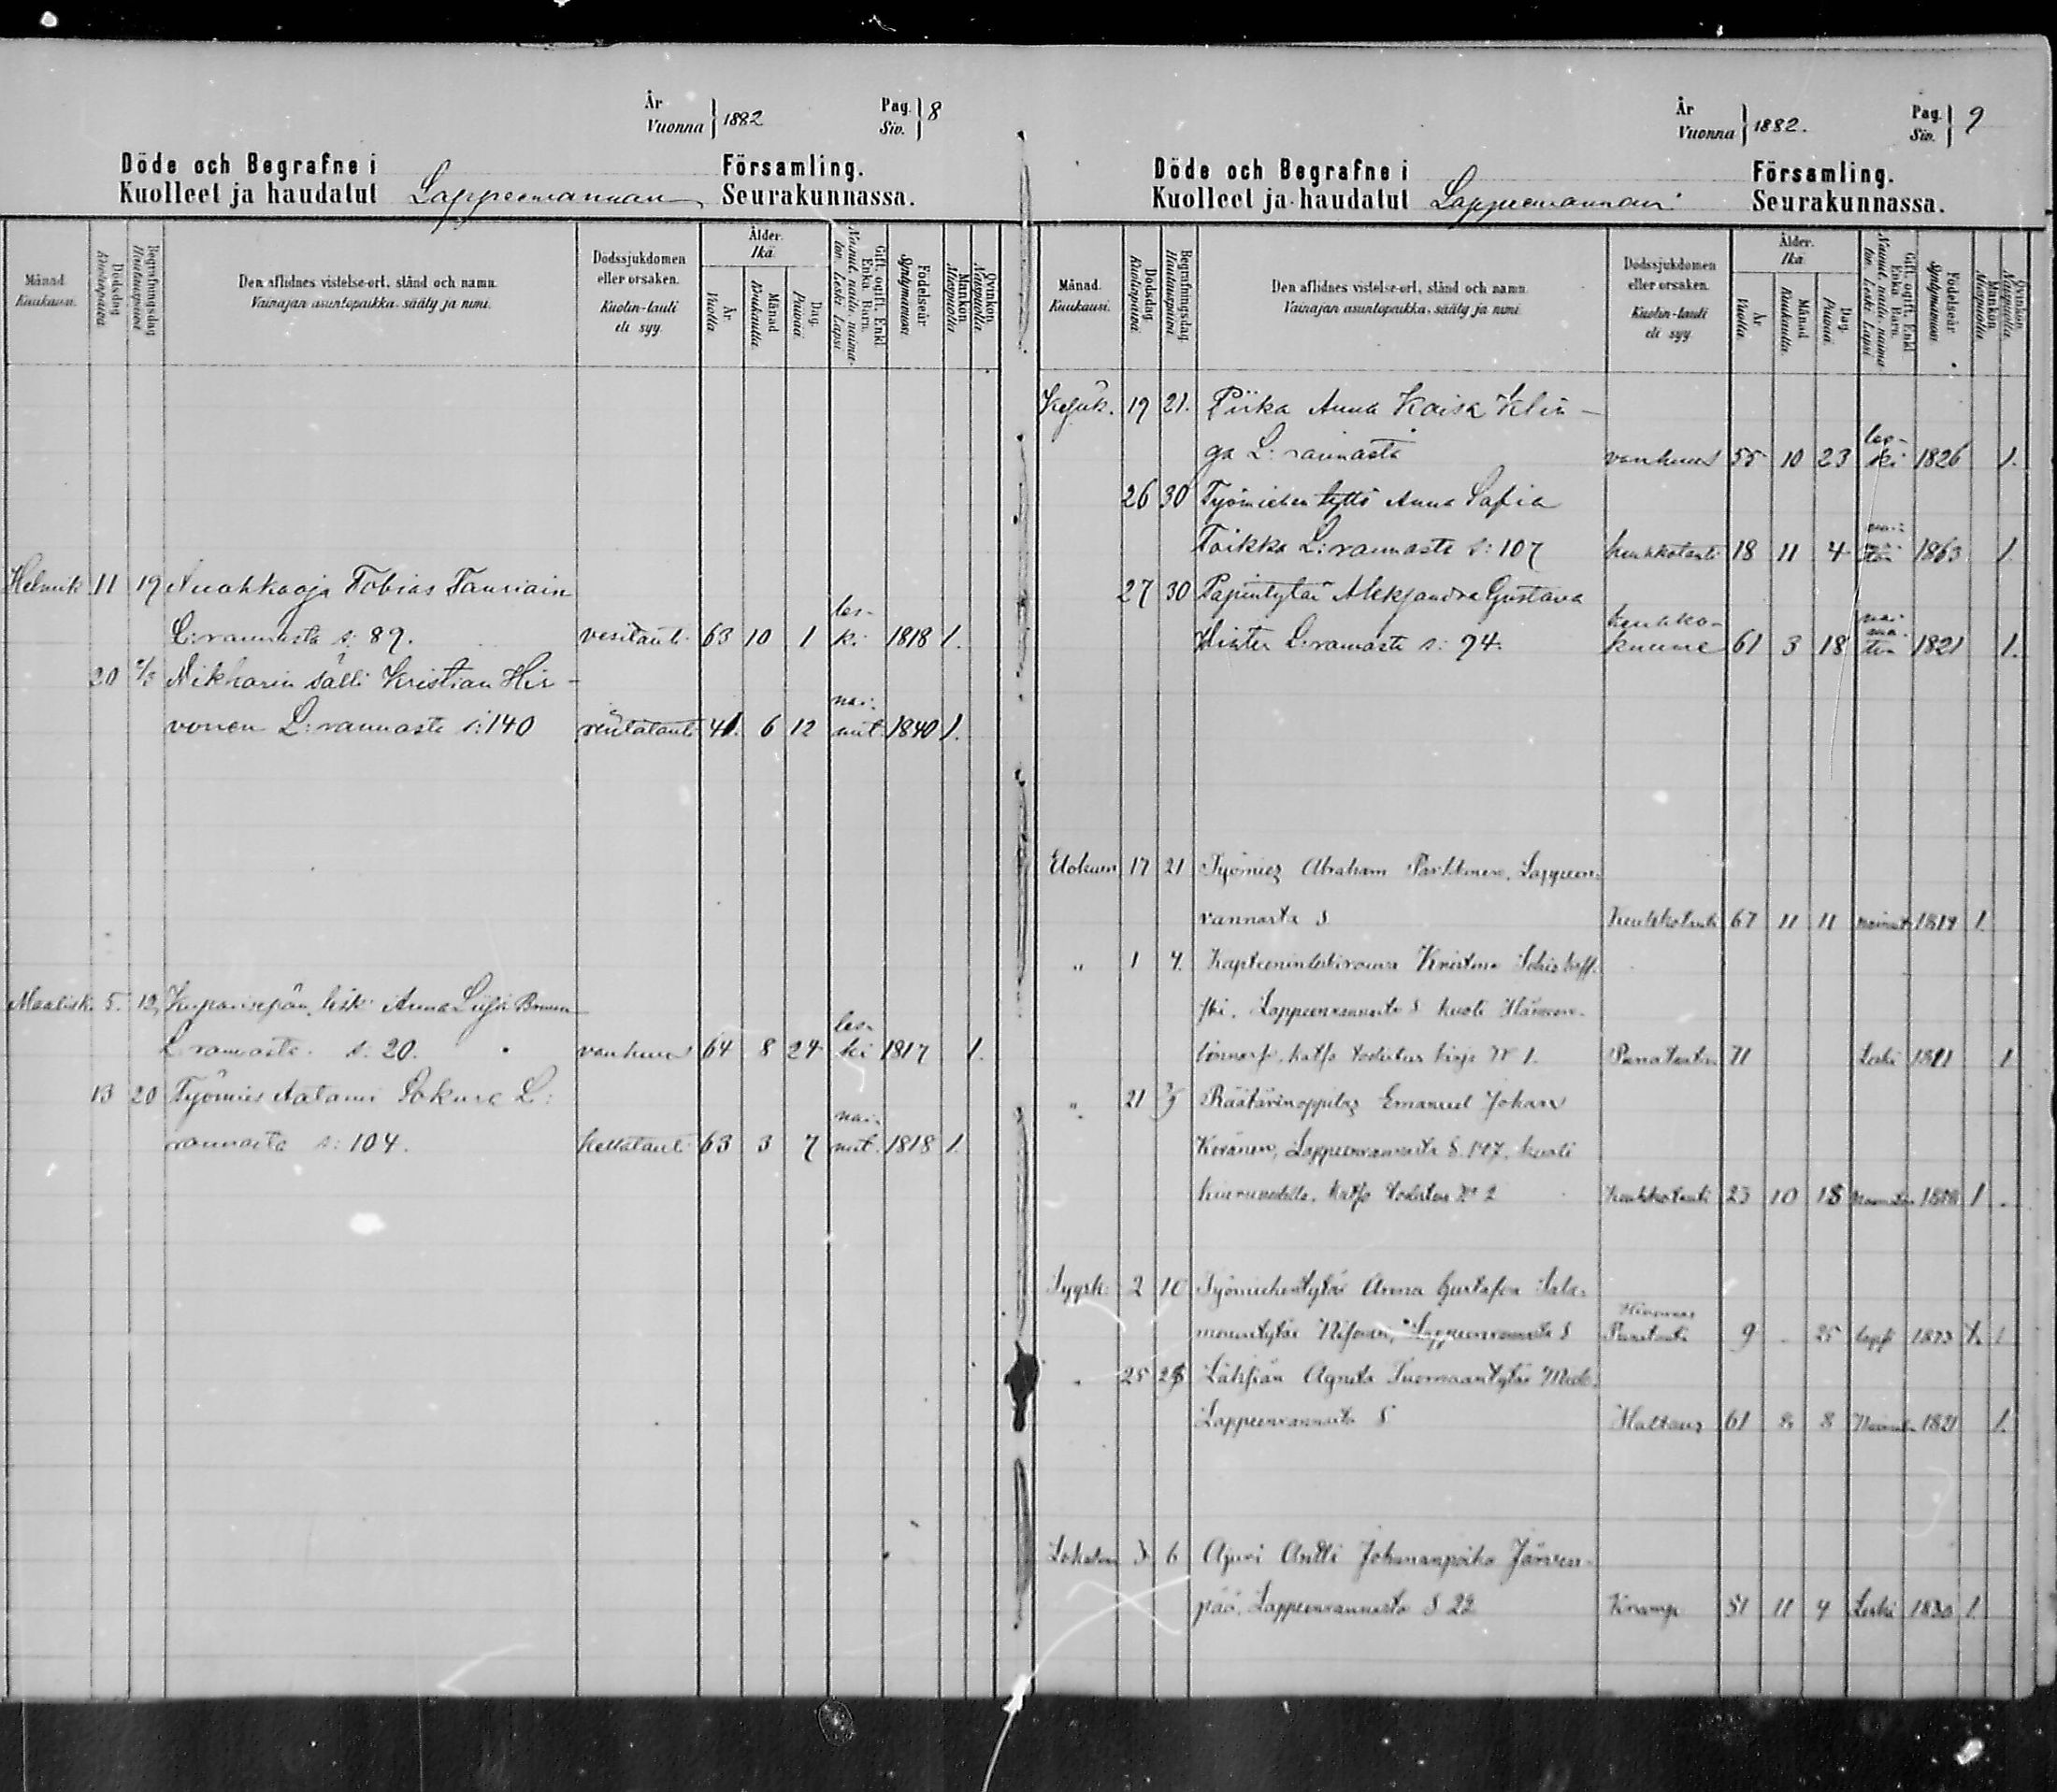 År
Vuonna 1882
Pag.
Siv. 8
Döde och Begrafne i Församling.
Kuolleet ja haudatut Lappeenrannan Seurakunnassa.
Månad. Kuukausi.
Dödsdag. Kuolinpäivä.
Begrafningsdag. Hautauspäivä.
Den aflidnes vistelse-ort, stånd och namn.
Vainajan asuntopaikka, sääty ja nimi.
Dödssjukdomen eller orsaken.
Kuolin-tauti eli syy.
Ålder. Ikä.
År. Vuotta.
Månad. Kuukautta.
Dag. Päivää.
Gift, ogift, Enkl. Enka. Barn.
Födelseår. Syntymävuosi.
Mankön. Miespuolia.
Qvinkön. Naispuolia.
Helmik. 11 19 Nuohkooja Tobias Tauriain
L:rannasta s: 89. vesitauti 63 10 1 leski 1818 1.
20 Nikkarin sälli Kristian Hir-
vonen L:rannasta s: 140 41. 6 12 nainut 1840 1.
Maalisk. 5. 12, Kuparisepän lesk. Anna Liisa
L rannasta. s: 20. vanhuus 64 8 24 leski 1817 1.
13 20 Työmies Aatami L:
rannasta s: 104. 63 3 7 nainut. 1818 1.
År
Vuonna 1882.
Pag.
Siv. 9
Döde och Begrafne i Församling.
Kuolleet ja haudatut Lappeenrannan Seurakunnassa.
Månad. Kuukausi.
Dödsdag. Kuolinpäivä.
Begrafningsdag. Hautauspäivä.
Den aflidnes vistelse-ort, stånd och namn.
Vainajan asuntopaikka, sääty ja nimi.
Dödssjukdomen eller orsaken.
Kuolin-tauti eli syy.
Ålder. Ikä.
År. Vuotta.
Månad. Kuukautta.
Dag. Päivää.
Gift, ogift, Enkl. Enka. Barn.
Födelseår. Syntymävuosi.
Mankön. Miespuolia.
Qvinkön. Naispuolia.
Kesäk. 19 21. Piika Anna Kaisa Klin-
ga L: rannasta vanhuus 55 10 23 leski 1826 1.
26 30 Työmiehen tyttö Anna Sofia
Toikka L:rannasta s: 107 keuhkotauti 18 11 4 naimatoin 1863 1.
27 30 Papintytär Aleksandra Gustava
L:rannasta s: 94. keuhkokuume 61 3 18 naimaton 1821 1.
Elokuu 17 21 Työmies Abraham Parkkinen, Lappeen-
rannasta S Keuhkotauti 67 11 11 Nainut 1814 1.
" 1 4. Kapteeninleskirouva Kristina
Lappeenrannasta S kuoli Hämeen-
linnassa, katso todistus kirja N 1. Punatauti 71 Leski 1811 1
" 21 Räätärinoppilas Emanuel Johan
Koränen, Lappeenrannasta S. 147, kuoli
katso todistus N 2 Keuhkotauti 23 10 18 1858 1
Syysk. 2 10 Työmiehentytär Anna Gustafva Salo-
monintytär Lappeenrannasta S Punatauti 9 - 25 lapsi 1873 1.
" 25 28 Agneta Tuomaantytär
Lappeenrannasta S Halvaus 61 8 8 1821 1.
Lokakuu 3 6 Ajuri Antti Johananpoika Järven-
pää, Lappeenrannasta S 22 Kramp 51 11 4 Leski 1830 1.